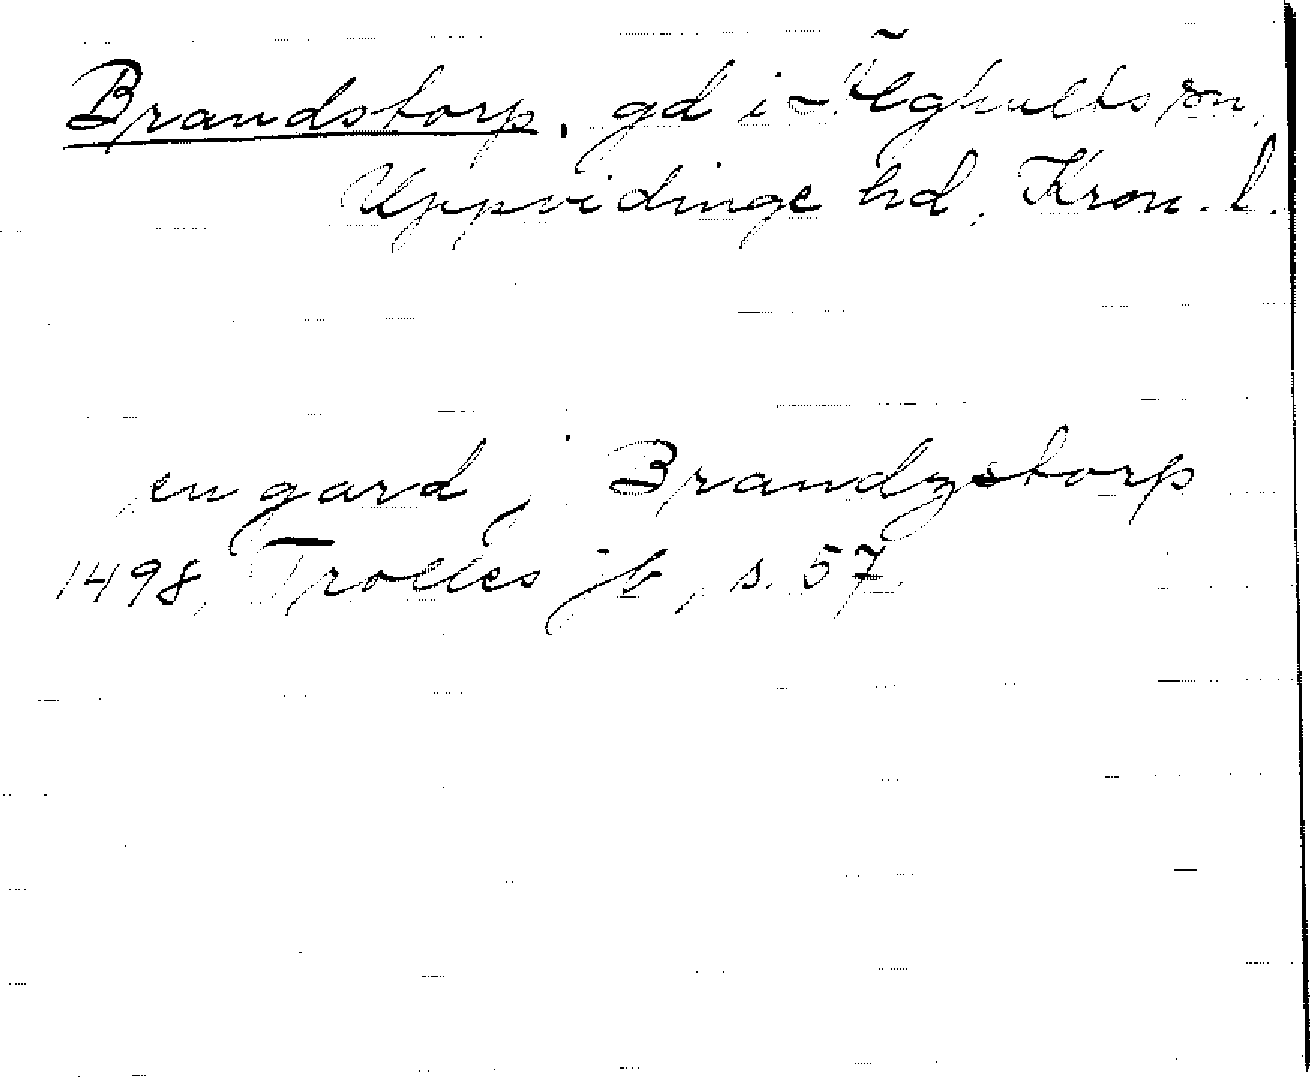 Brandstorp, gd i Älghults sn,
Uppvidinge hd, Kron. l.
en gard j Brandzstorp
1498, Trolles jb, s. 57